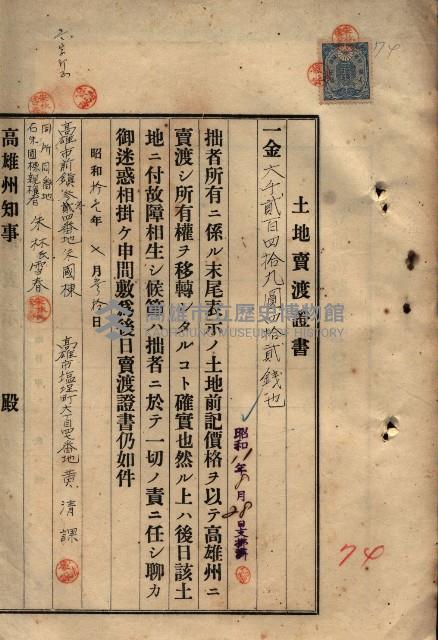 土地賣渡證書
一金六千貳百四拾九圓四拾貳錢也
拙者所有ニ係ル末尾表示ノ土地前記價格ヲ以テ高雄州ニ
賣渡シ所有權ヲ移轉シタルコト確實也然ル上ハ後日該土
地ニ付故障相生シ候節ハ拙者ニ於テ一切ノ責ニ任シ聊カ
御迷惑相掛ケ申間敷爲後日賣渡證書仍如件
昭和拾七年 月 日
高雄市塩埕町六丁目四七番地 黄清課
高雄市前鎮 貳四番地 朱國棟
同所同番地
右朱國棟親權者 朱林氏雪春
高雄州知事 殿
昭和 年 月28日支拂濟
74
74
高雄市立歷史博物館
KAOHSIUNG MUSEUM OF HISTORY